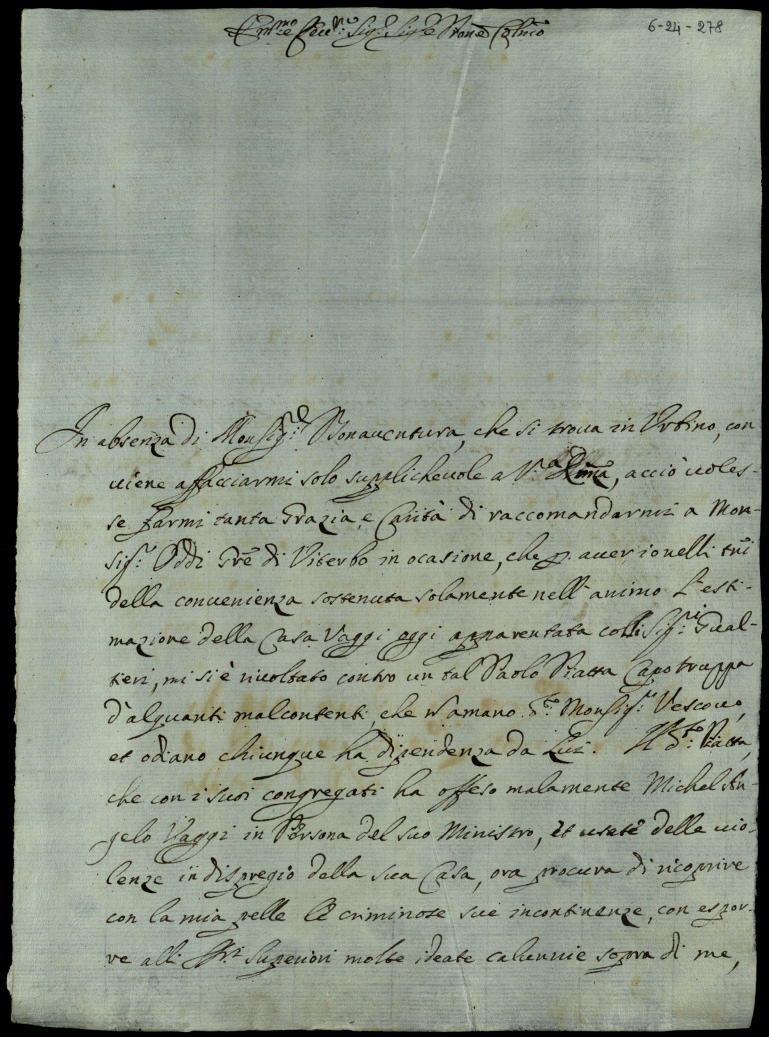 Em.mo e Rev.mo Sig.r Sig.r e Prone Colmo
6-24-278
In absenza di Monsig.r Bonaventura, che si trova in Urbino, con
viene affacciarmi solo supplichevole a V.a Em̃a, acciò voles-
se farmi tanta Grazia, e Carità di raccomandarmi a Mon-
sig.r Oddi Gr̃e di Viterbo in ocasione, che p. aver io nelli tñi
della convenienza sostenuta solamente nell'animo l'esti-
mazione della Casa Vaggi oggi apparentata colli Sig.ri Gual-
tieri, mi si è rivoltato contro un tal Paolo Piatta Capo truppa
d'alquanti malcontenti, che n'amano d.to Monsig.r Vescovo,
et odiano chiunque ha dipendenza da Lui. Il d.to Piatta,
che con i suoi congregati ha offeso malamente Michel An-
gelo Vaggi in Persona del suo Ministro, et usate delle vio-
lenze in dispregio della sua Casa, ora procura di ricoprire
con la mia pelle le criminose sue incontinenze, con espor-
re alli Superiori molte ideate calunnie sopra di me,